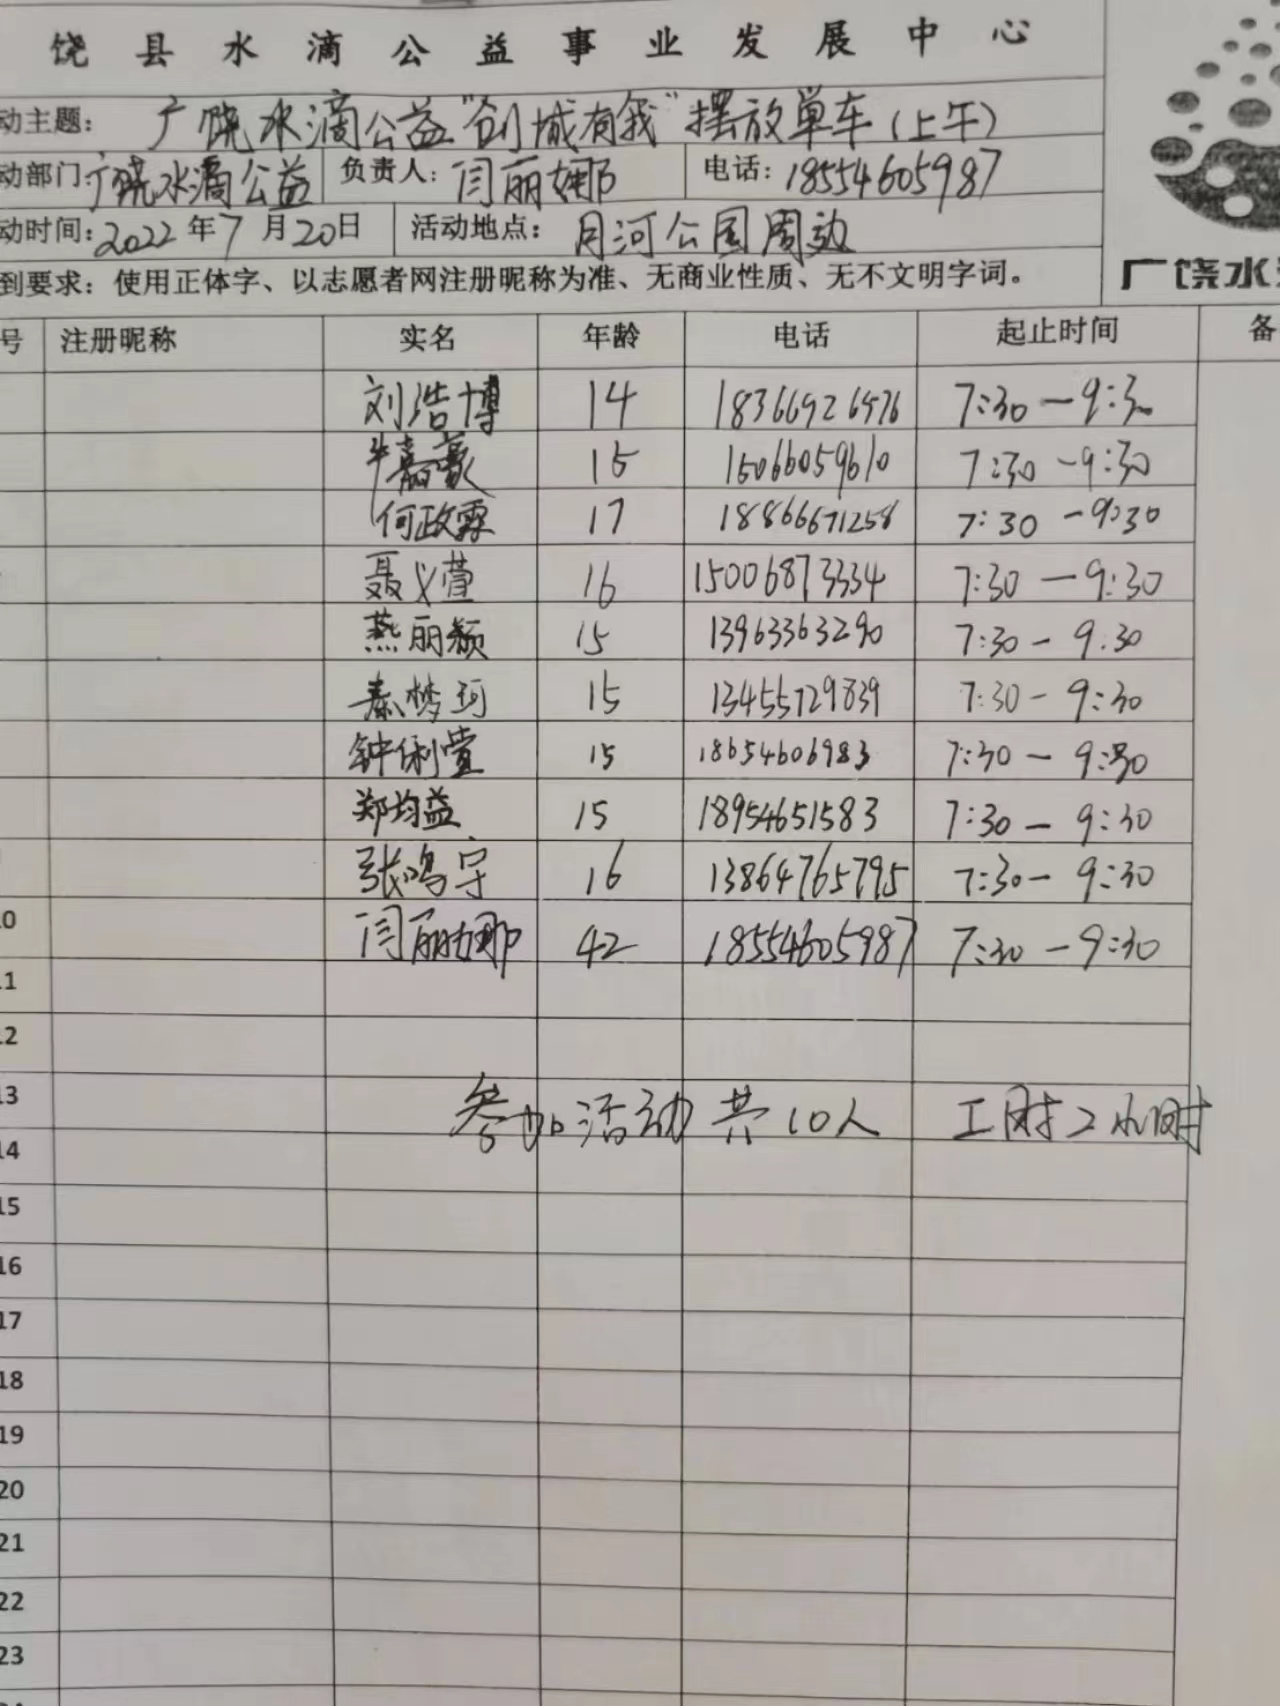 饶县水滴公益事业发展中心
动主题：广饶水滴公益“创城有我”摆放单车（上午）
动部门：广饶水滴公益 负责人：闫丽娜 电话：18554605987
动时间：2022年7月20日 活动地点：月河公园周边
到要求：使用正体字、以志愿者网注册昵称为准、无商业性质、无不文明字词。
广饶水
号 注册昵称 实名 年龄 电话 起止时间 备
刘浩博 14 18366926976 7:30—9:30
牛嘉豪 15 15066059610 7:30—9:30
何政霖 17 18866671258 7:30—9:30
聂义萱 16 15006873334 7:30—9:30
燕丽颖 15 13963363290 7:30—9:30
秦梦珂 15 13455729839 7:30—9:30
钟俐萱 15 18654606983 7:30—9:30
郑均益 15 18954651583 7:30—9:30
张鸣宇 16 13864765795 7:30—9:30
10 闫丽娜 42 18554605987 7:30—9:30
11
12
13 参加活动共10人 工时2小时
14
15
16
17
18
19
20
21
22
23